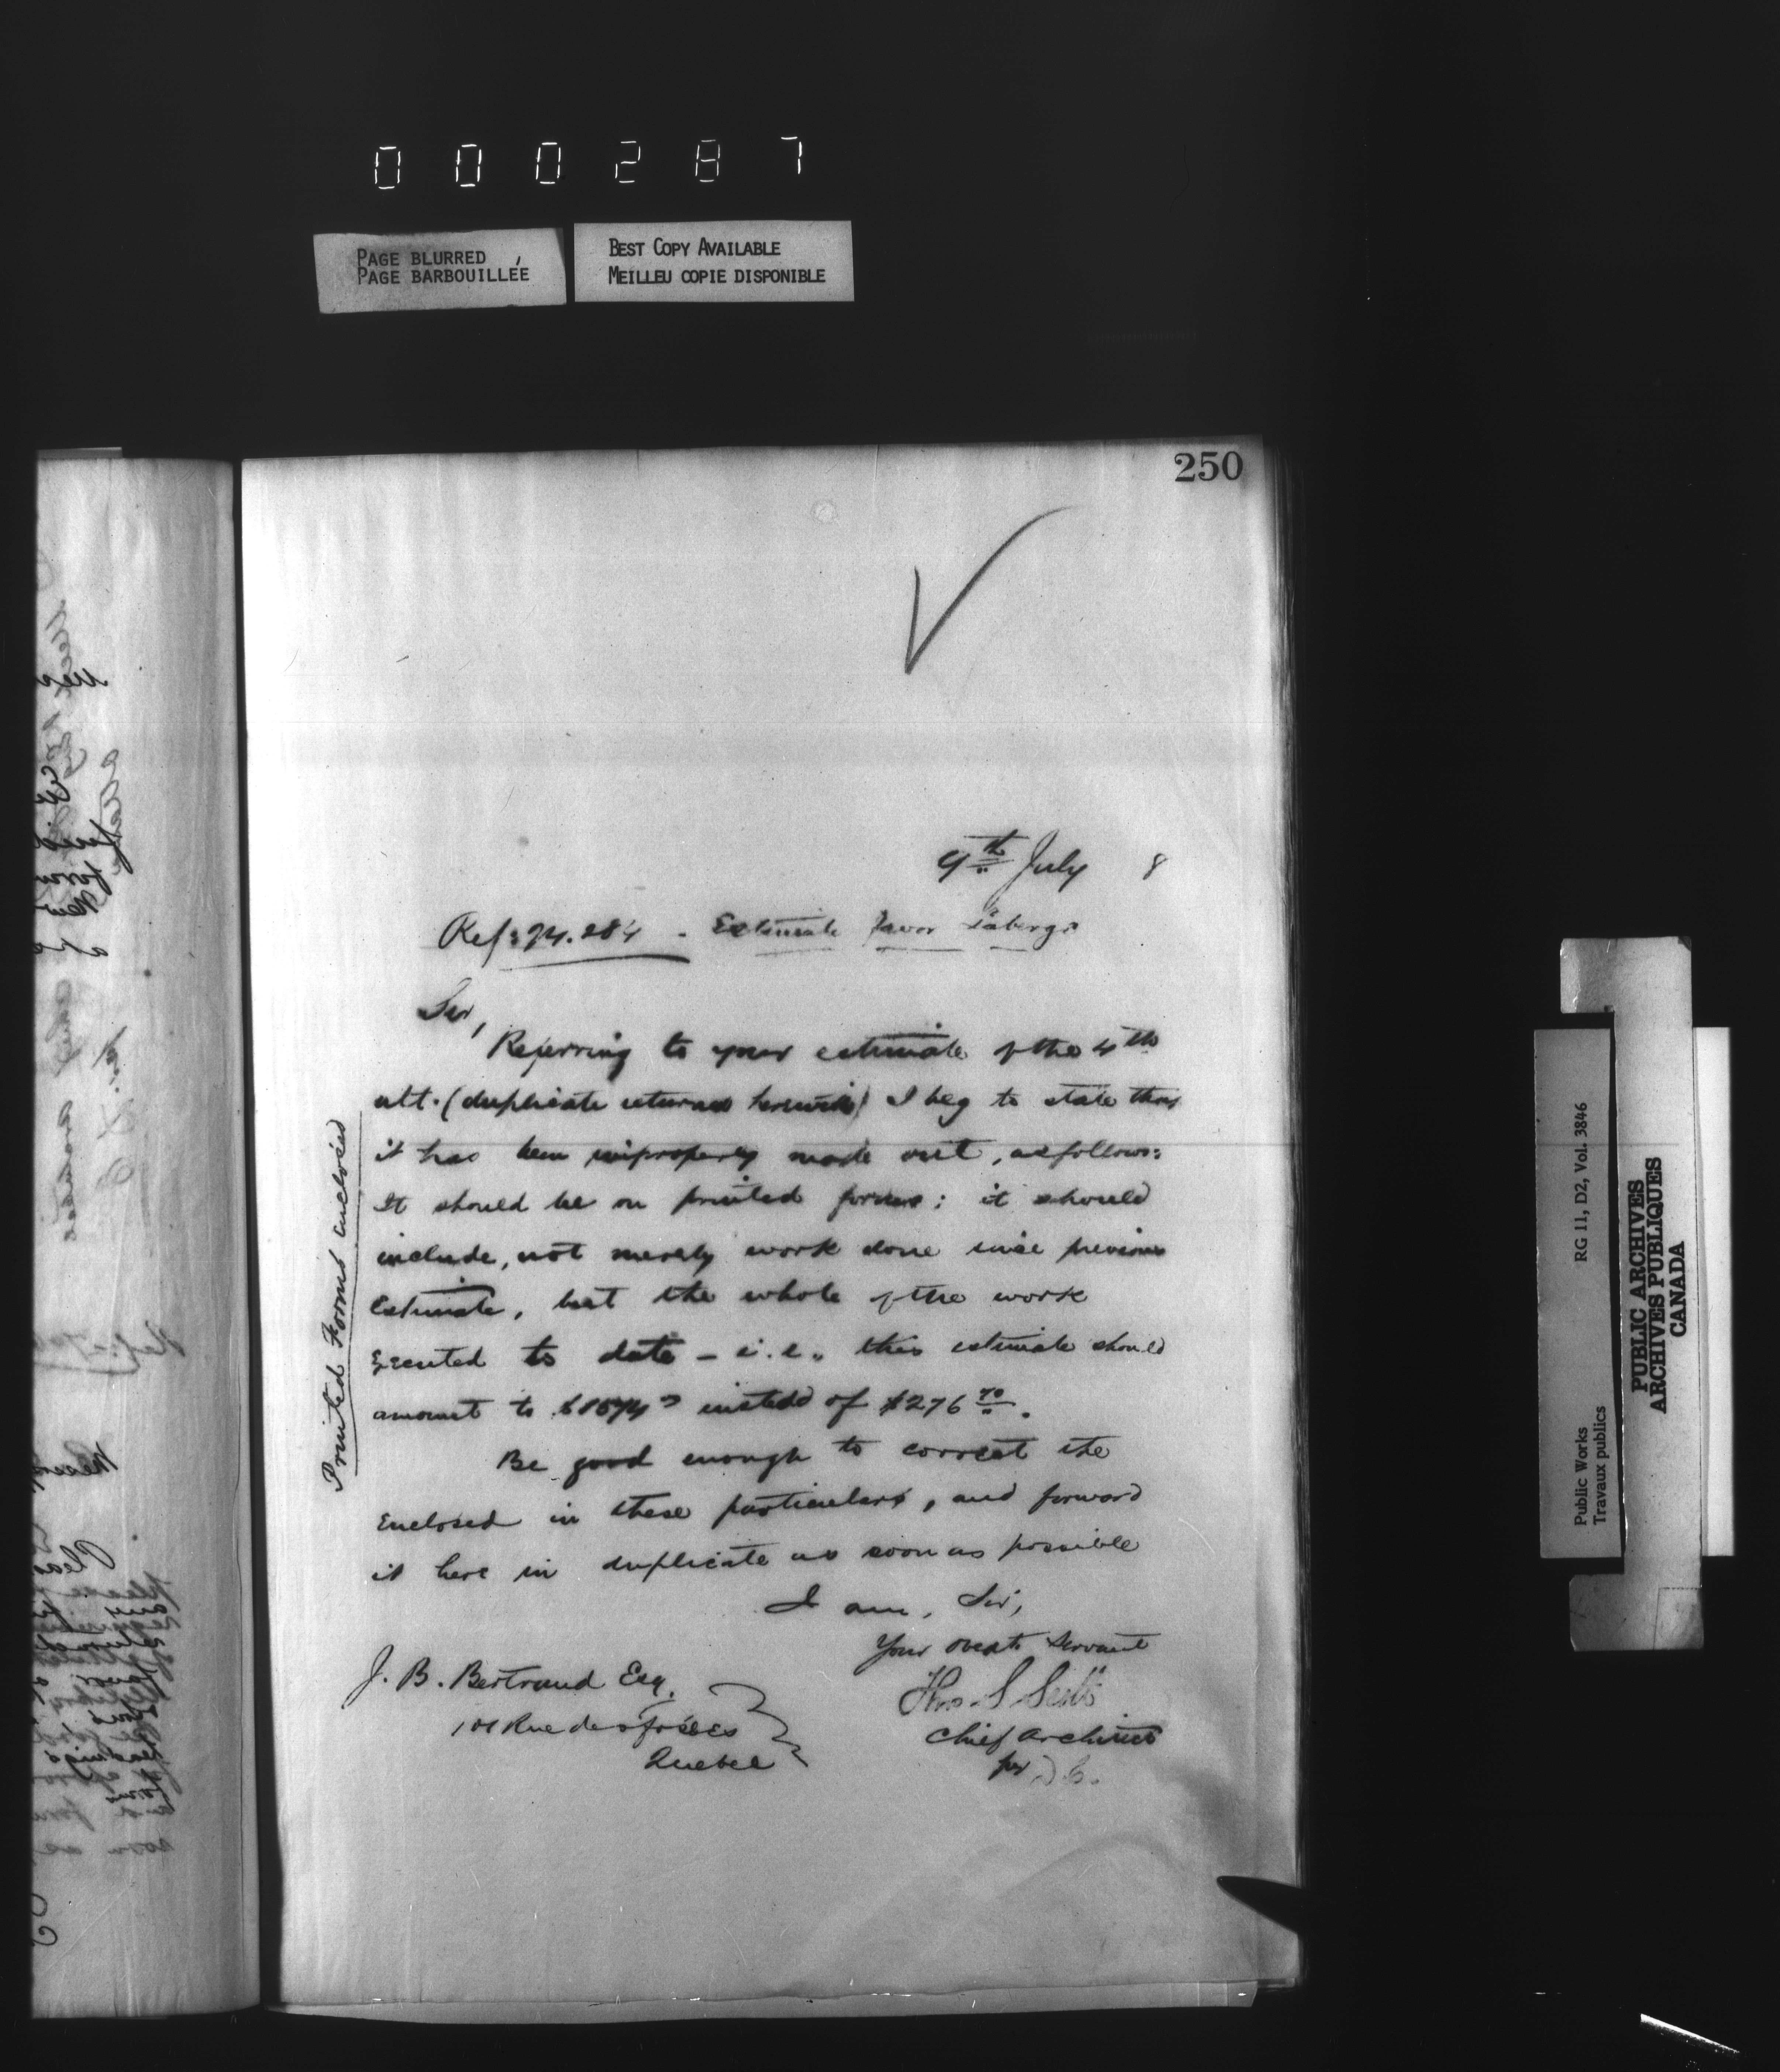 000287
PAGE BLURRED
PAGE BARBOUILLÉE
BEST COPY AVAILABLE
MEILLEU COPIE DISPONIBLE
250
9th July 8
Ref: 94.284 - Estimate favor Laberge
Sir,
Referring to your estimate of the 4th
ult. (duplicate returned herewith) I beg to state that
it has been improperly made out, as follows:
It should be on printed forms; it should
include, not merely work done since previous
Estimate, but the whole of the work
executed to date - i.e. this estimate should
amount to instead of $276 70.
Be good enough to correct the
Enclosed in these particulars, and forward
it here in duplicate as soon as possible
I am, Sir,
Your obedt Servant
Thos S Scott
Chief Architect
per D.E.
J. B. Bertrand Esq.
Rue des Fossés
Quebec
Printed Forms enclosed
RG 11, D2, Vol. 3846
Public Works
Travaux publics
PUBLIC ARCHIVES
ARCHIVES PUBLIQUES
CANADA